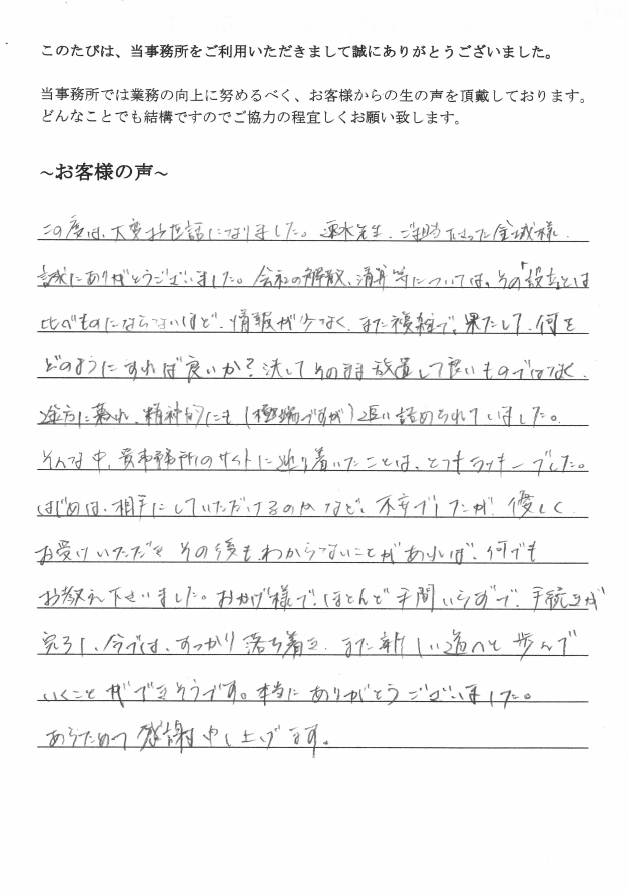 このたびは、当事務所をご利用いただきまして誠にありがとうございました。
当事務所では業務の向上に努めるべく、お客様からの生の声を頂戴しております。
どんなことでも結構ですのでご協力の程宜しくお願い致します。
~お客様の声~
この度は、大変お世話になりました。速水先生、ご担当下さった金城様、
誠にありがとうございました。会社の解散、清算等については、その「設立」とは
比べものにならないほど、情報が少なく、また複雑で、果たして、何を
どのようにすれば良いか?決してそのまま放置して良いものではなく、
途方に暮れ、精神的にも(極端ですが)追い詰められていました。
そんな中、貴事務所のサイトに辿り着いたことは、とてもラッキーでした。
はじめは、相手にしていただけるのかなど、不安でしたが、優しく
お受けいただき その後も、わからないことがあれば、何でも
お教え下さいました。おかげ様で、ほとんど手間いらずで、手続きが
完了し、今では、すっかり落ち着き、また新しい道へと歩んで
いくことができそうです。本当にありがとうございました。
あらためて感謝申し上げます。